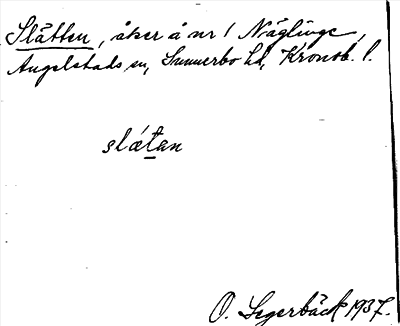 Slätten, åker å nr 1 Näglinge,
Angelstads sn, Sunnerbo hd, Kronob. l.
slátan
O. Segerbäck 1937.